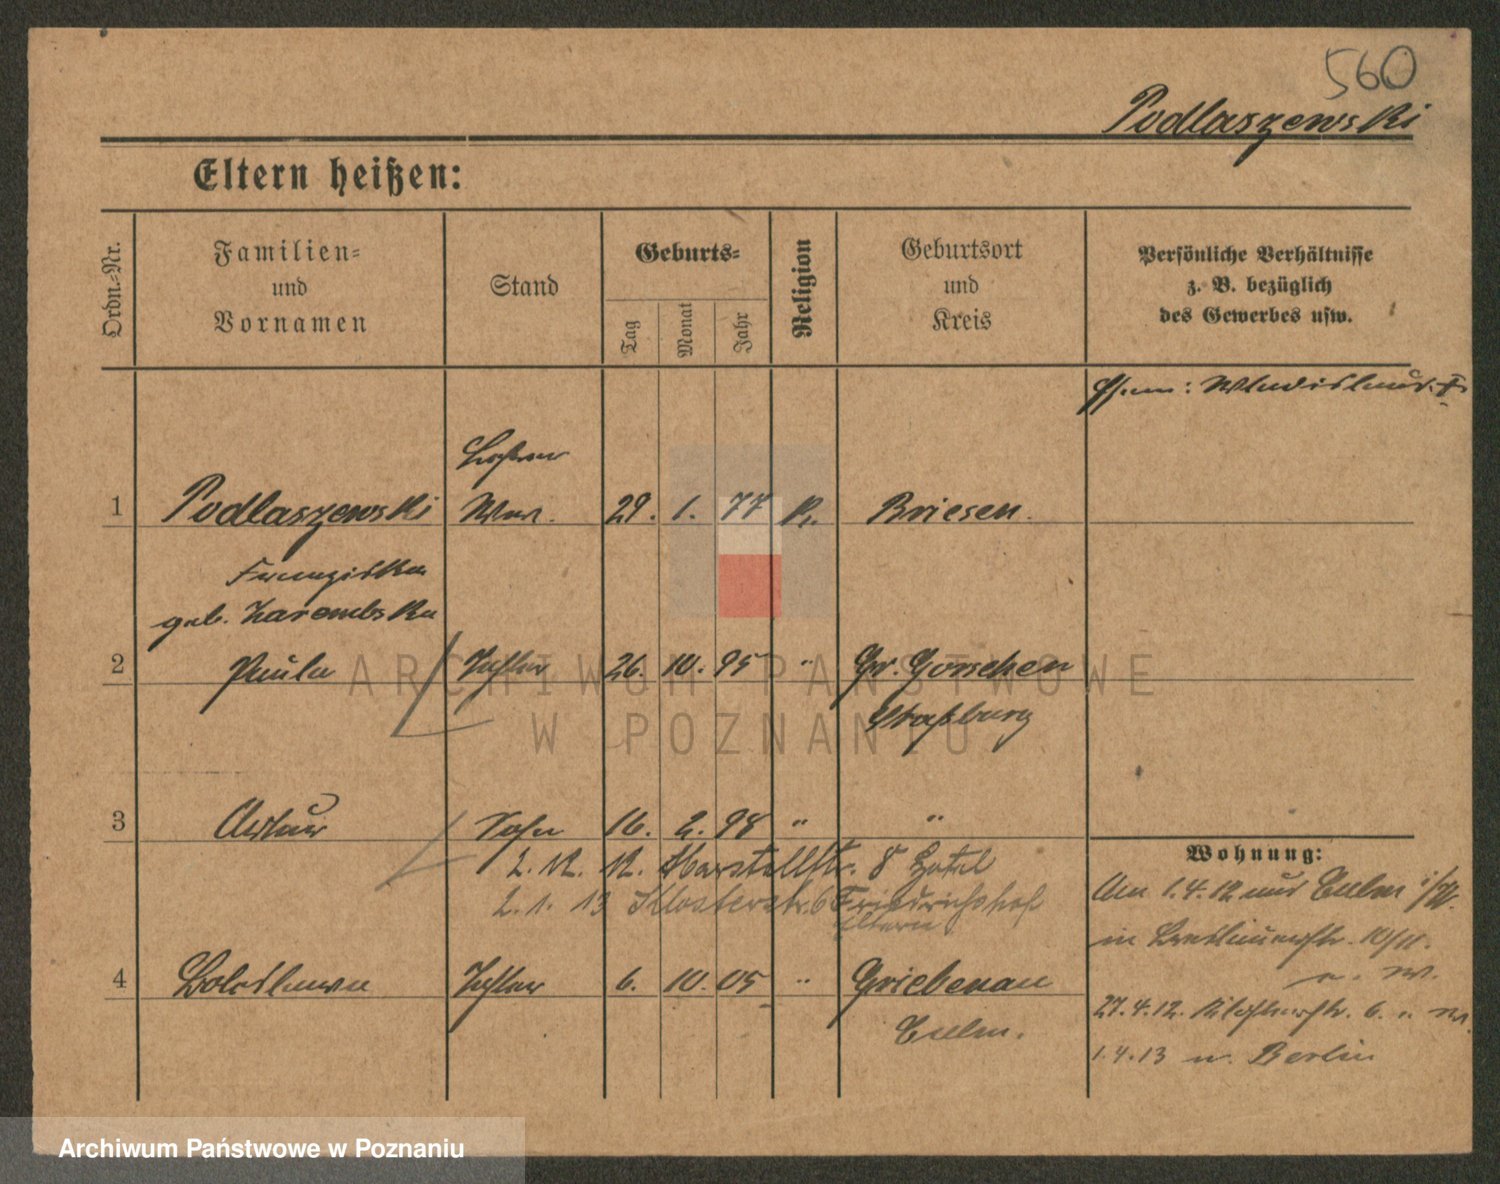 560
Podlaszewski
Eltern heißen:
Ordn.-Nr.
Familien-
und
Vornamen
Stand
Geburts-
Tag
Monat
Jahr
Religion
Geburtsort
und
Kreis
Persönliche Verhältnisse
z. B. bezüglich
des Gewerbes usw.
Wladislaus
1 Podlaszewski 29. 1. 77 K. Briesen.
Franziska
geb. Zarembska
2 Paula Tochter 26. 10. 95 " Gr. Gorschen
Straßburg
3 Artur Sohn 16. 2. 98 " "
2. 12. 12. Marstallstr. 8 Hotel
2. 1. 13 Klosterstr. 6 Friedrichshof
Eltern
4 Boleslawa Tochter 6. 10. 05 " Griebenau
Culm.
Wohnung:
Am 1.4.12 aus Culm i/W.
in Breslauerstr. 10/11.
27.4.12. Klosterstr. 6.
1.4.13 n. Berlin
ARCHIWUM PAŃSTWOWE
W POZNANIU
Archiwum Państwowe w Poznaniu